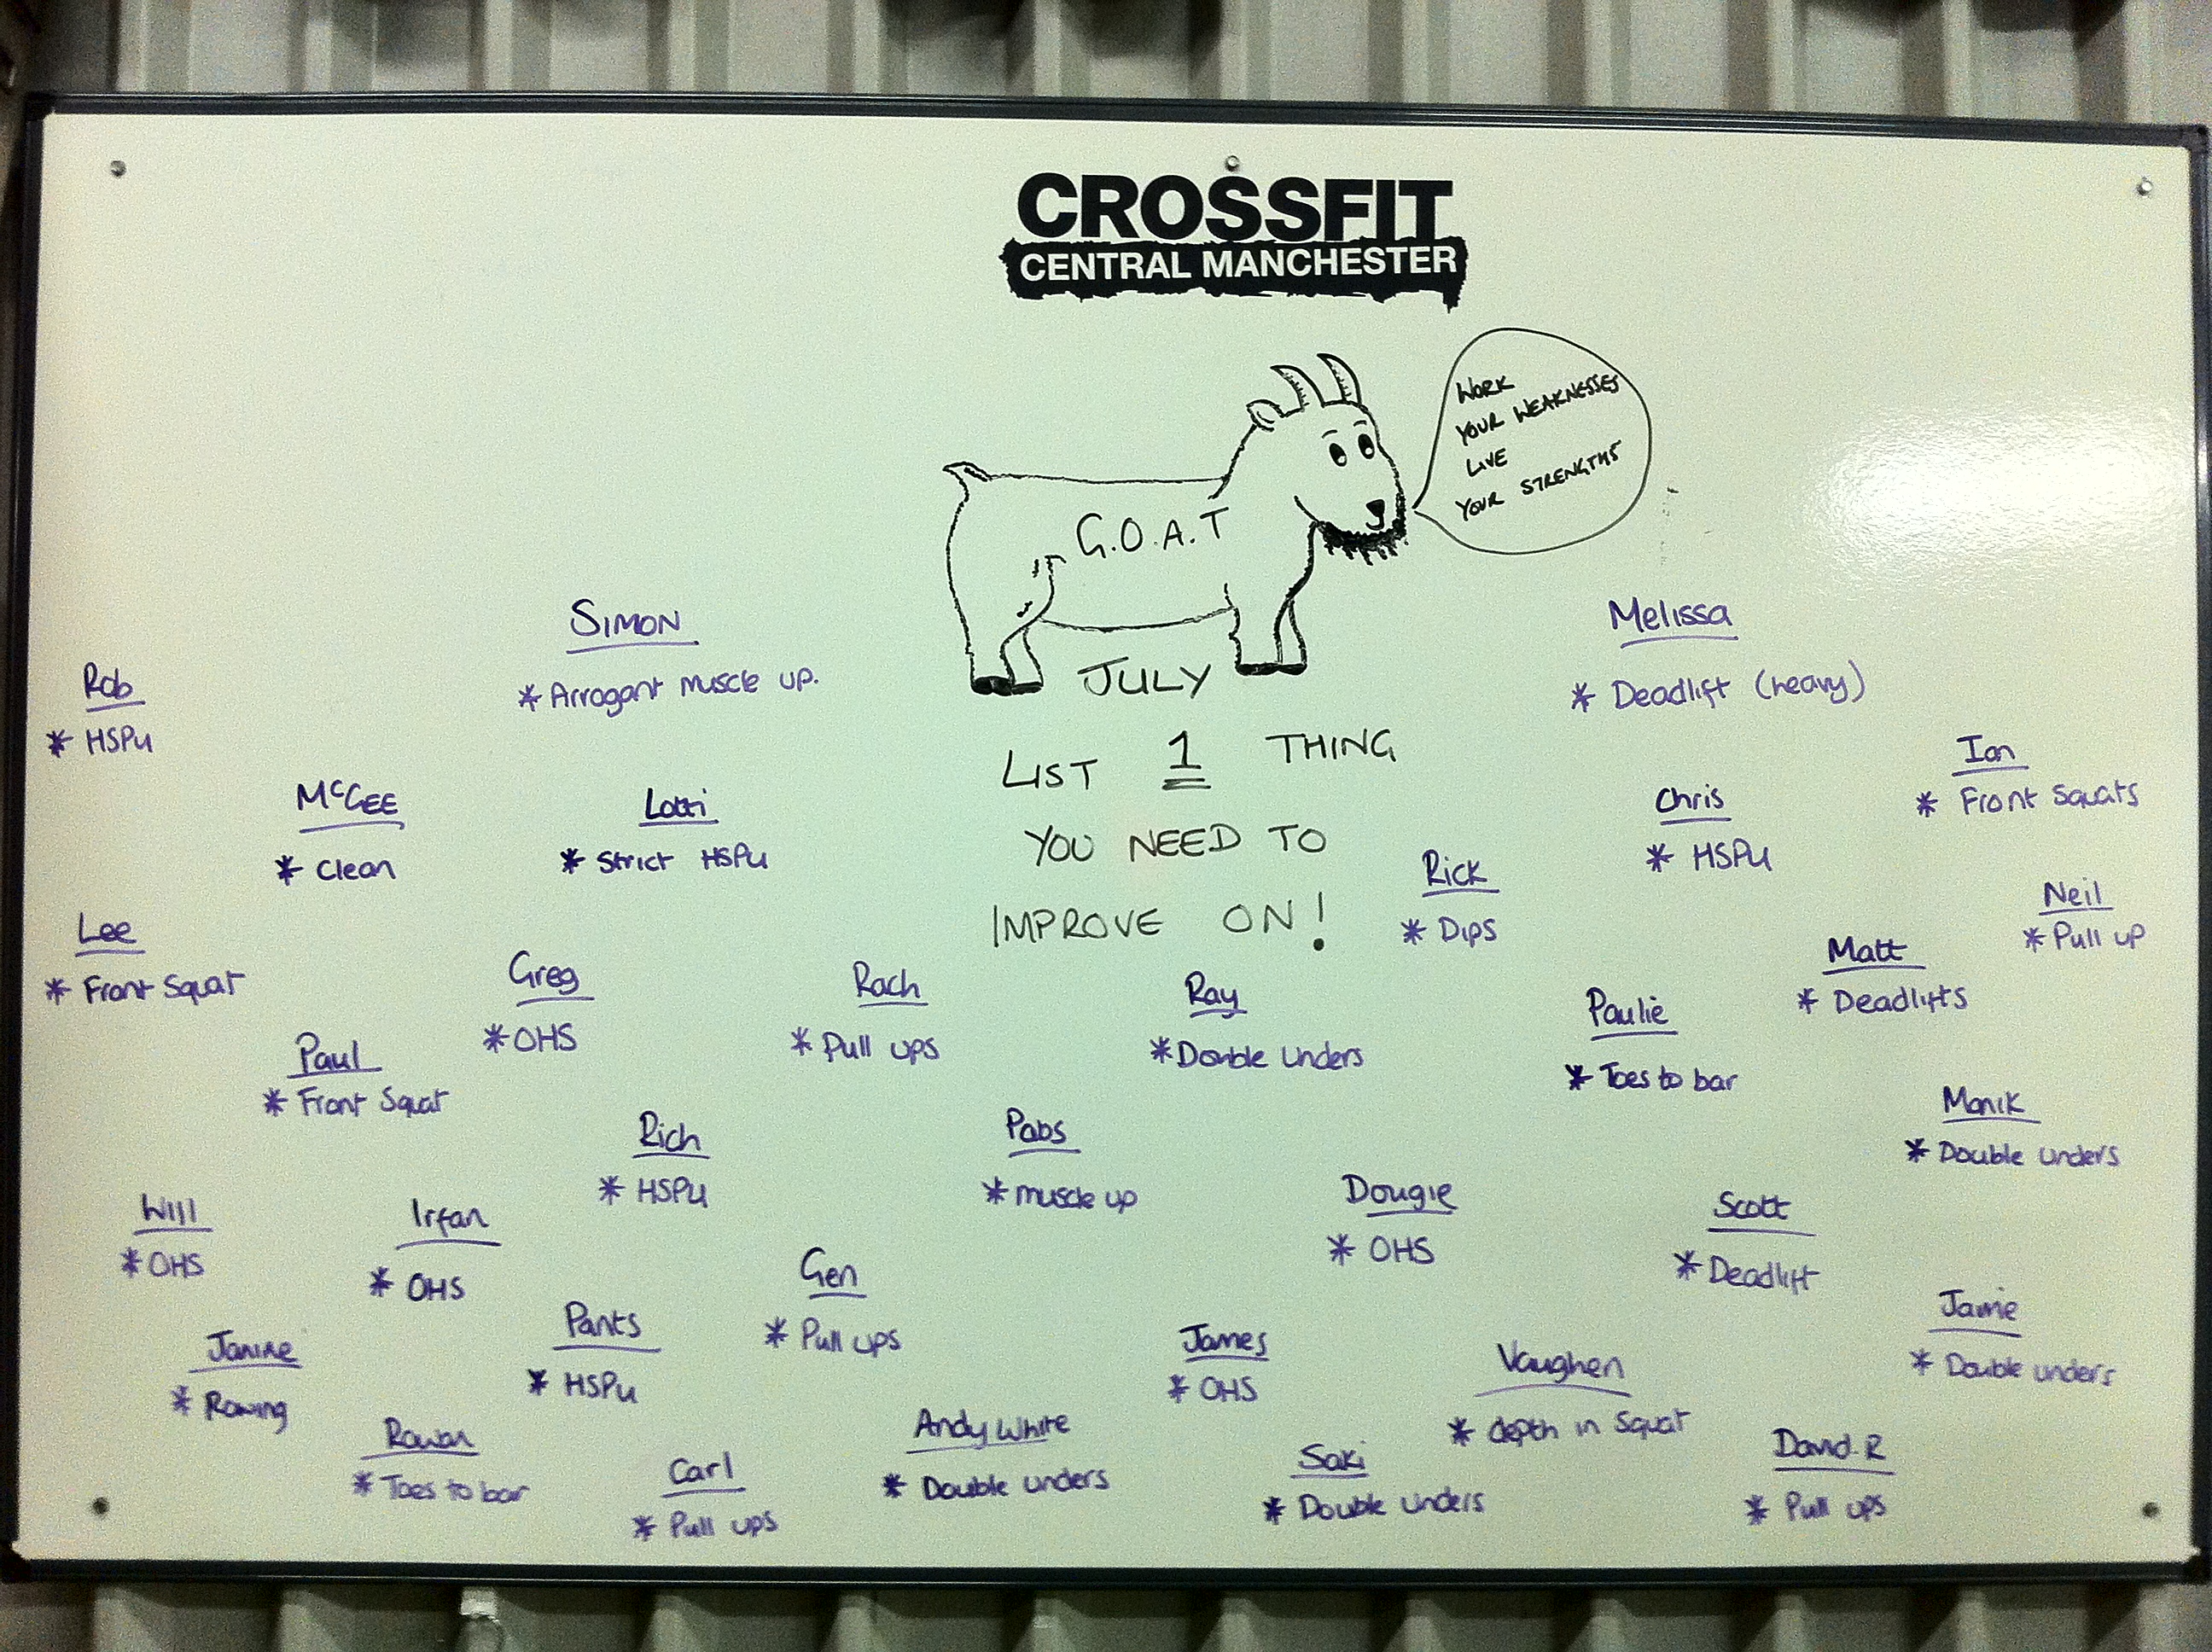 CROSSFIT
CENTRAL MANCHESTER
WORK
YOUR WEAKNESSES
LIVE
YOUR STRENGTHS
G.O.A.T
JULY
LIST 1 THING
YOU NEED TO
IMPROVE ON!
SIMON
* Arrogant muscle up.
Melissa
* Deadlift (heavy)
Rob
* HSPU
Ian
* Front Squats
McGEE
* Clean
Lotti
* Strict HSPU
Chris
* HSPU
Rick
* Dips
Neil
* Pull up
Lee
* Front Squat
Greg
* OHS
Rach
* Pull ups
Ray
* Double Unders
Matt
* Deadlifts
Paulie
* Toes to bar
Paul
* Front Squat
Rich
* HSPU
Pabs
* muscle up
Manik
* Double unders
Will
* OHS
Irfan
* OHS
Dougie
* OHS
Scott
* Deadlift
Gen
* Pull ups
Pants
* HSPU
Janine
* Rowing
James
* OHS
Vaughen
* depth in Squat
Jamie
* Double unders
Rowan
* Toes to bar
Carl
* Pull ups
Andy White
* Double unders
Saki
* Double unders
David R
* Pull ups